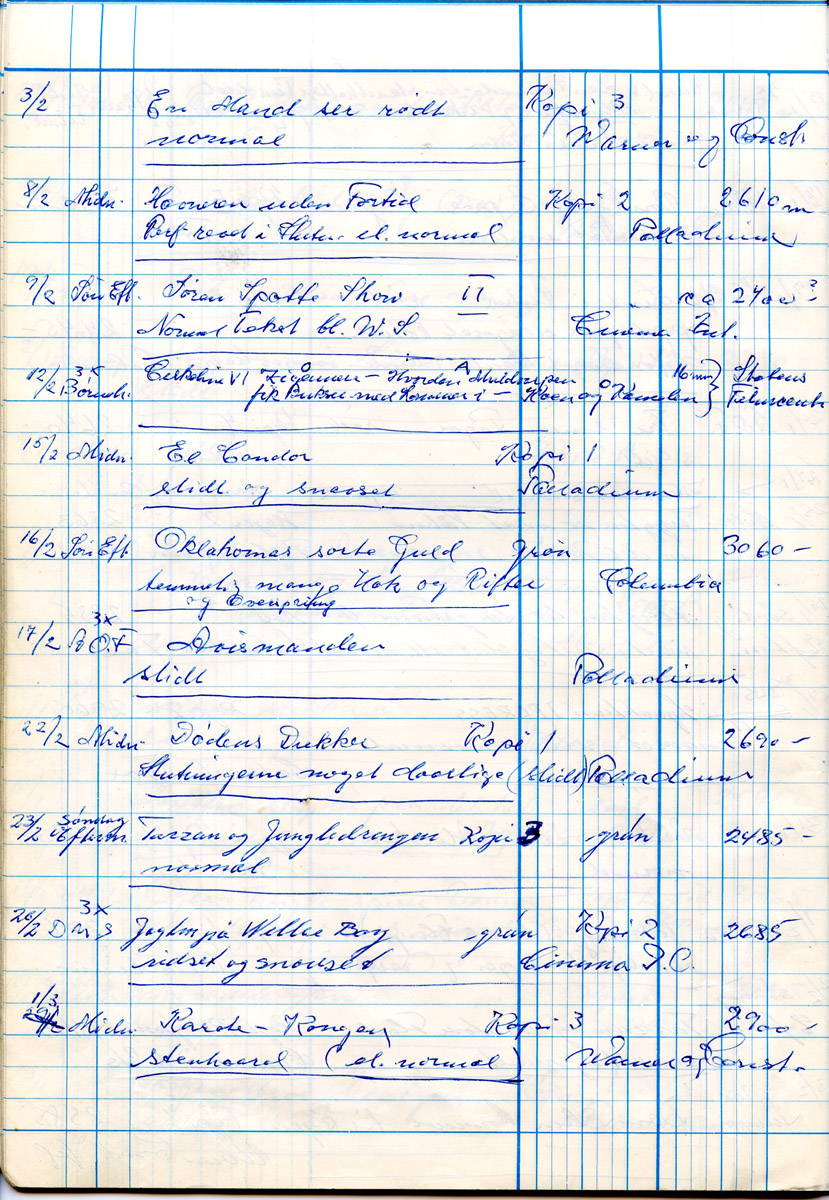 3/2 En Mand ser rødt Kopi 3
normal Warner og Const.
8/2 Midn. uden Fortid Kopi 2 2610 m
Perf- revet i Slutn. el. normal Palladium
9/2 Søn Eft. Søren Spætte Show II ca 2400 ?
Normal Tekst bl. W. S. Cinema Int.
12/2 3x Børneh. Cirkeline VI Zigøneren – Hvordan Muldvarpen 16 mm } Statens
fik Bukser med Lommer i – og } Filmcentr
15/2 Midn. El Condor Kopi 1
slidt og snavset Palladium
16/2 Søn Eft. Oklahomas sorte Guld grøn 3060 –
temmelig mange Hak og Rifter Columbia
og Oversprøjtning
17/2 3x B.O.F Avismanden
slidt Palladium
22/2 Midn. Dødens Dukker Kopi 1 2690 –
Slutningerne noget daarlige (slidt) Palladium
23/2 Søndag Efterm. Tarzan og Jungledrengen Kopi 3 grøn 2485 –
normal
26/2 3x D Jagten på Willie Boy grøn Kopi 2 2685
ridset og snavset Cinema I.C.
1/3 Midn. Karate – Kongen Kopi 3 2900 –
stenhaard (el. normal) Warner og Const.